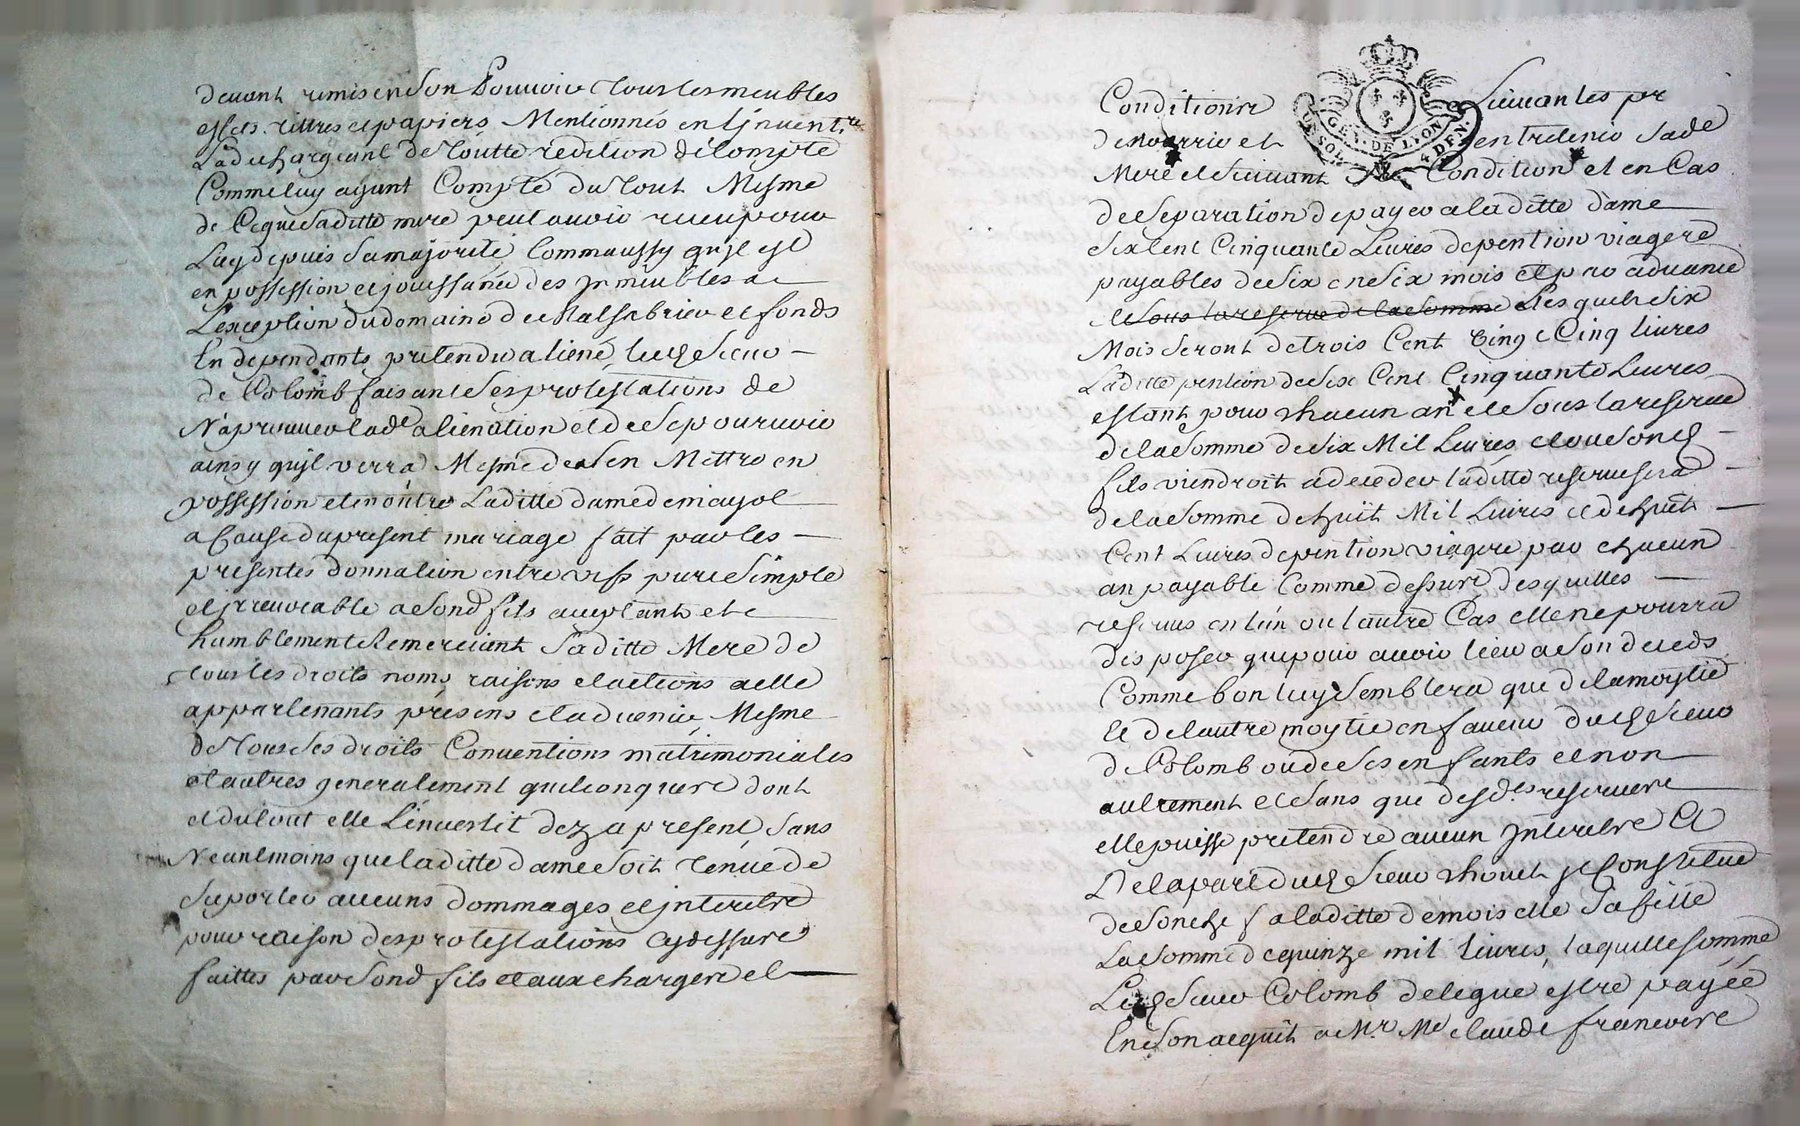 devant remis en son Pouvoir tous les meubles
effets tiltres et papiers Mentionnés en l'jnventre
La dechargeant de toutte redition de Compte
Comme luy ayant Compté du tout Mesme
de Ceque saditte mere peut avoir receu pour
Luy depuis sa majorité, Comme aussy qu'jl est
en possession et jouissance des jmmeubles a
L'exception du domaine de et fonds
En dependants, pretendu aliené, ledt sieur
de Colomb faisant ses protestations de
N'aprouver lade alienation et de se pourvoir
ainsy qu'jl verra Mesme de s'en Mettre en
possession et en oûtre Laditte dame demayol
a Cause du present mariage fait par les
presentes donnation entre vifs pure simple
et jrrevocable a sond fils aceptant et
humblement Remerciant saditte Mere de
tous les droits noms raisons et actions a elle
appartenants présens et advenir, Mesme
de tous ses droits Conventions matrimoniales
et autres generalement quelconques dont
et du tout elle L'envestit dez a present, sans
Neantmoins que laditte dame soit tenue de
suporter aucuns dommages et jnterests
pour raison des protestations cydessus
faittes par sond fils et aux charges et
Conditions suivantes
de nourrir et entretenir sade
Mere et suivant sa Condition et en Cas
de separation de payer a laditte dame
six Cent Cinquante Livres de pention viagere
payables de six en six mois et par advance
et sous la reserve de la somme Lesquels six
Mois seront de trois Cent vingt Cinq livres
Laditte pention de six Cent Cinquante Livres
estant pour chacun an et sous la reserve
de la somme de six Mil Livres et ou sondt
fils viendroit a deceder laditte reserve sera
de la somme de huit Mil Livres et de huit
Cent Livres de pention viagere par chacun
an payable Comme dessus, desquelles
reserves en l'un ou l'autre Cas elle ne pourra
disposer que pour avoir lieu a son deceds
Comme bon luy semblera que de la moytié
et de l'autre moytié en faveur dudt sieur
de Colomb ou de ses enfants et non
autrement et sans que desdes reserves
elle puisse pretendre aucun jnterests Et
De la part dudt sieur jl Constitue
de son chef a laditte demoiselle sa fille
La somme de quinze mil livres, laquelle somme
Ledt sieur Colomb delegue estre payée
En son acquit a Mr Me Claude francois
GEN. DE LYON